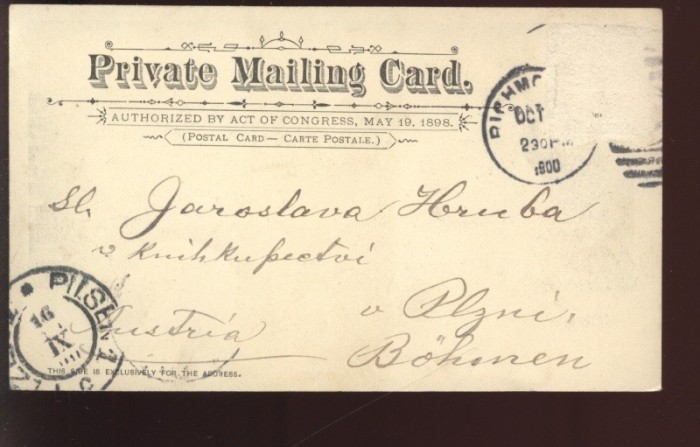 Private Mailing Card.
AUTHORIZED BY ACT OF CONGRESS, MAY 19, 1898.
(POSTAL CARD — CARTE POSTALE.)
RICHMO
OCT
230PM
1900
Sl. Jaroslava Hruba
v Knihkupectví
v Plzni,
Austria
Böhmen
PILSEN 1
16
THIS SIDE IS EXCLUSIVELY FOR THE ADDRESS.